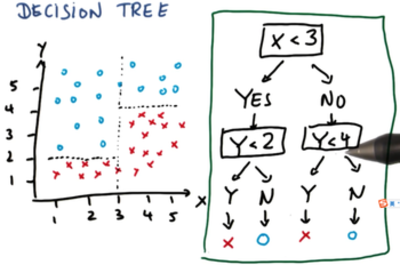 DECISION TREE
Y
5
4
3
2
1
1 2 3 4 5 X
X < 3
YES NO
Y < 2 Y < 4
Y N Y N
X O X O